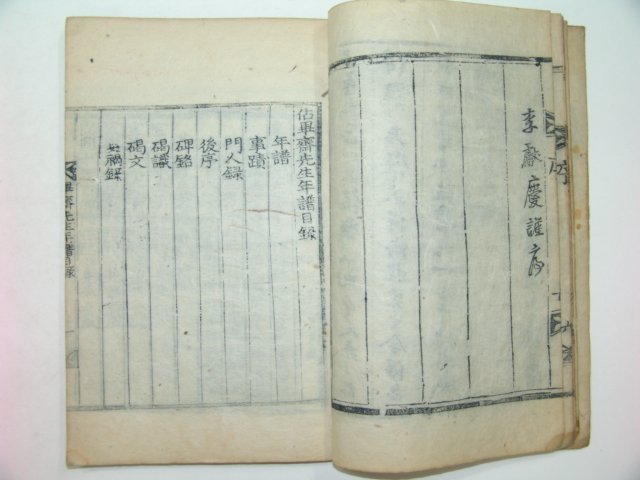 李
慶謹序
序
佔畢齋先生年譜目錄
年譜
事蹟
門人錄
後序
碑銘
碣識
碣文
禍錄
畢齋先生年譜目錄